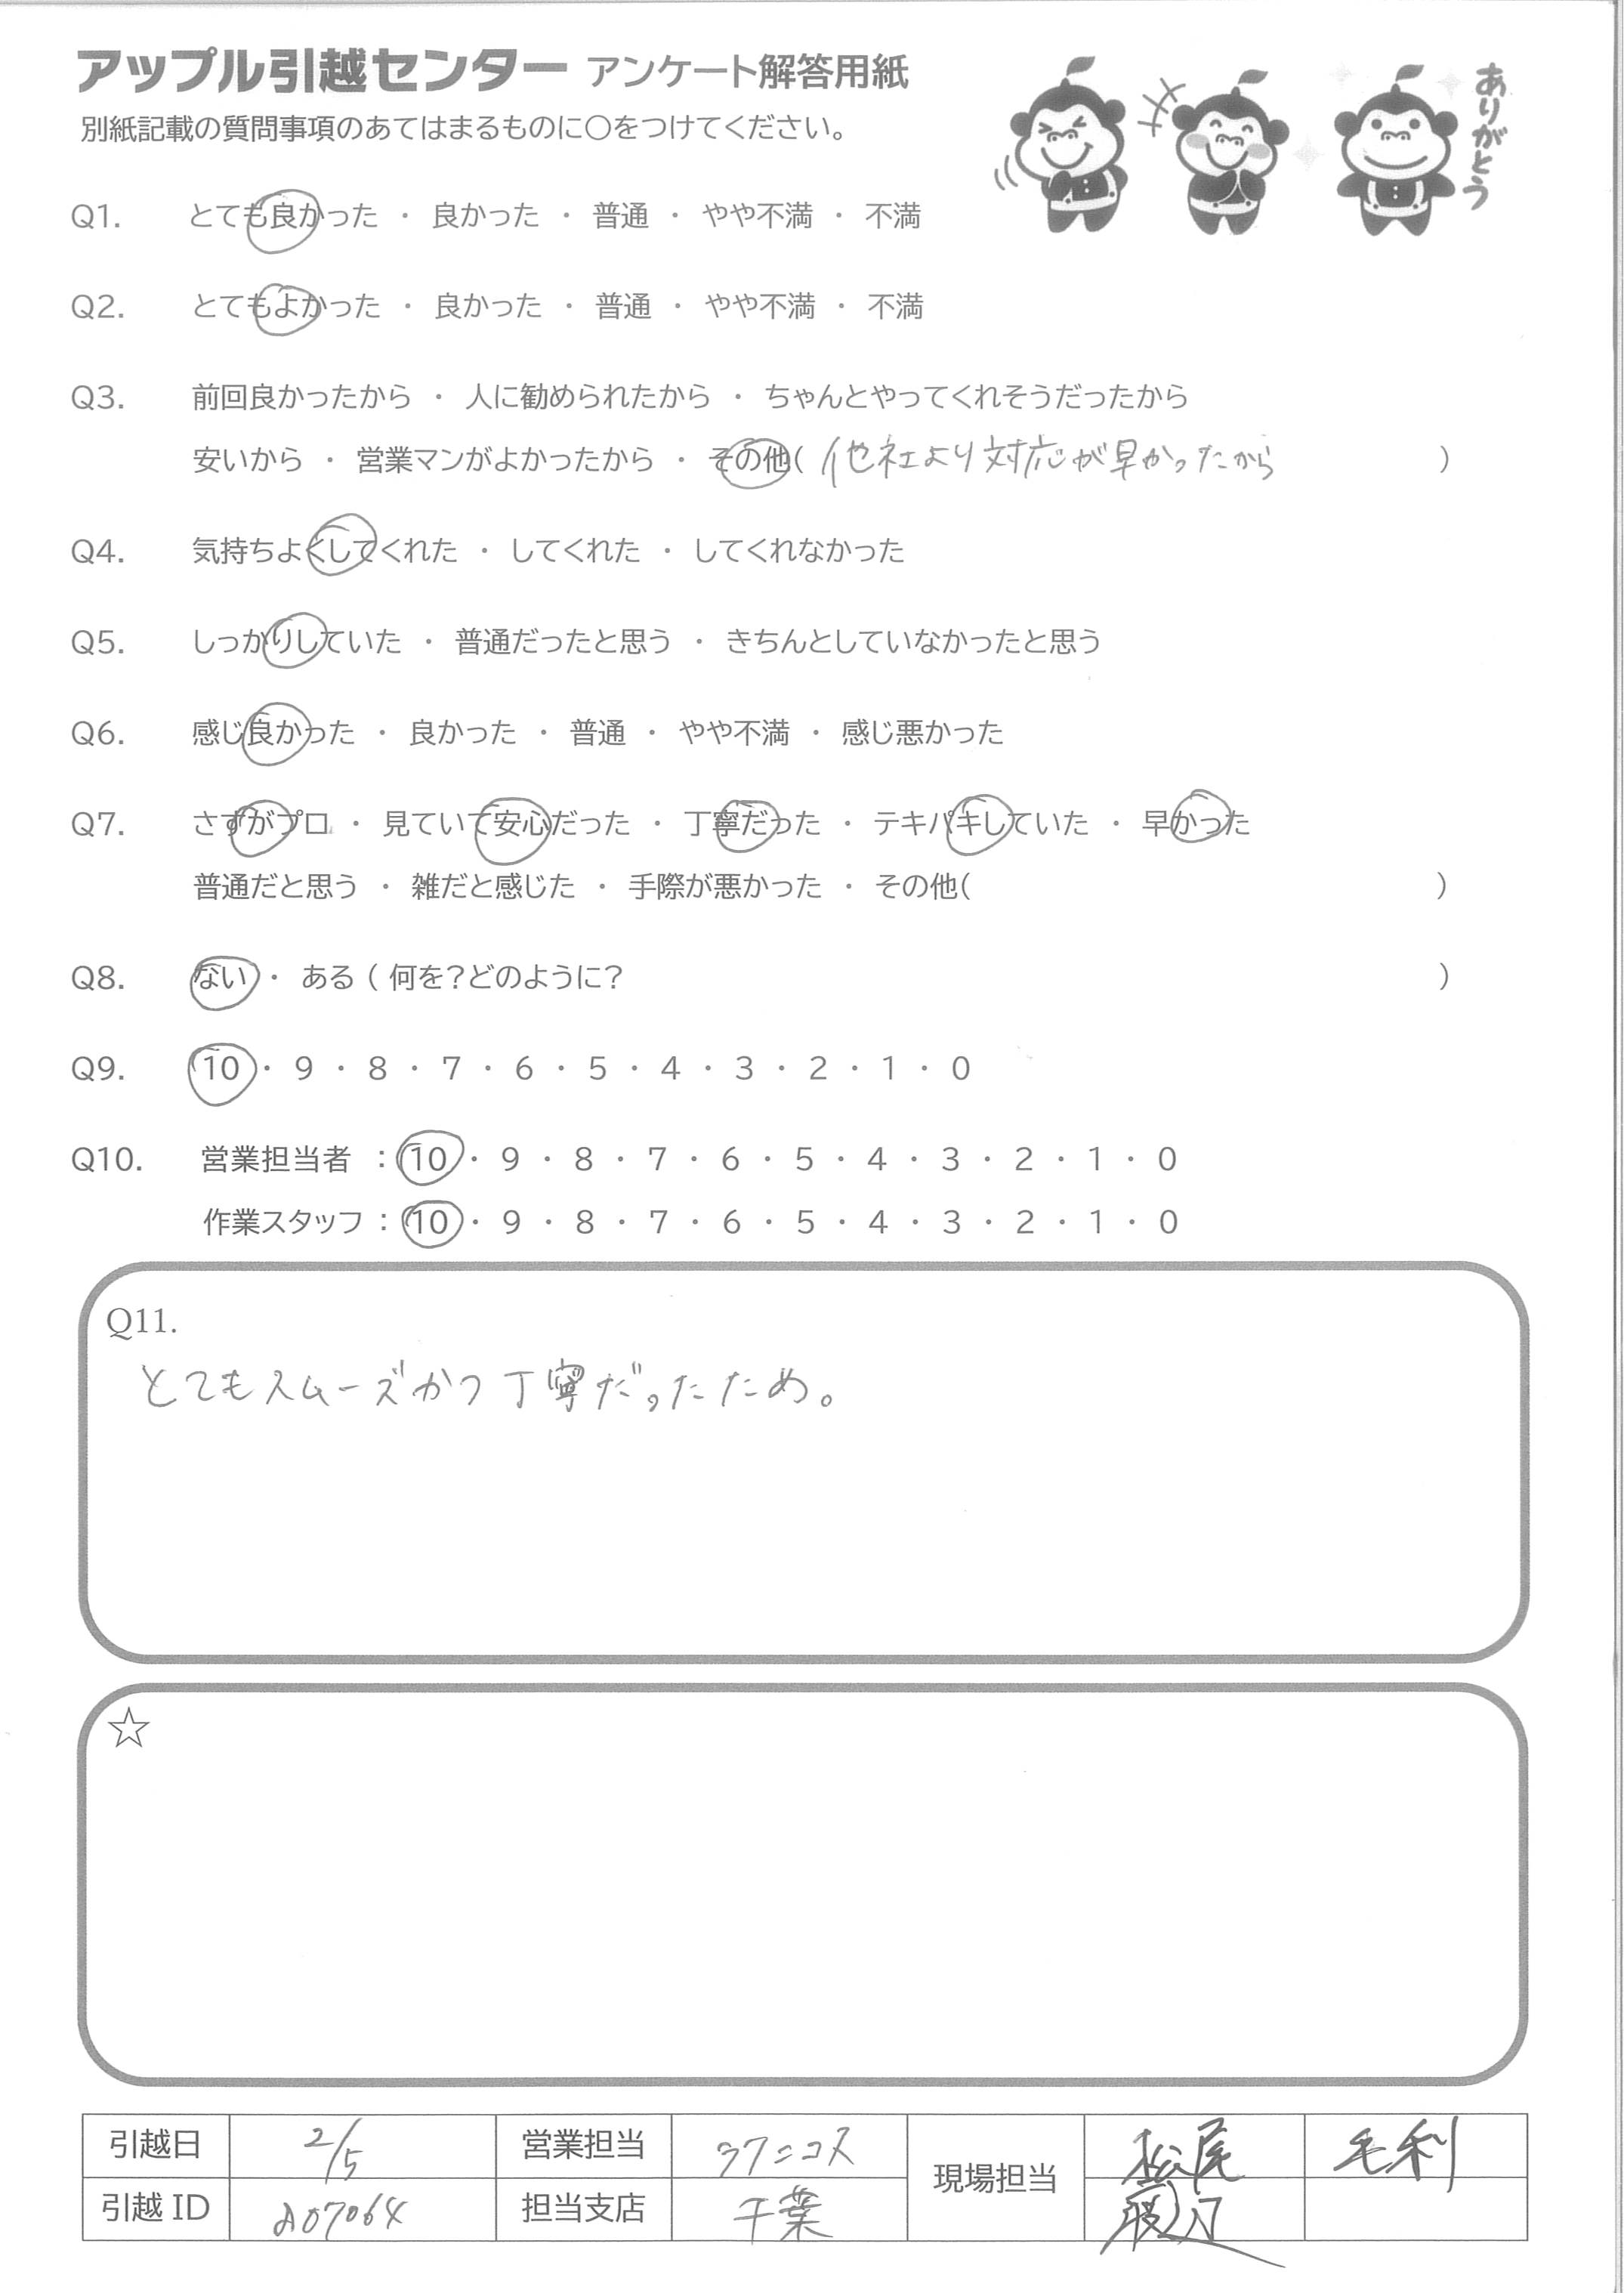 アップル引越センター アンケート解答用紙
別紙記載の質問事項のあてはまるものに○をつけてください。
ありがとう
Q1. とても良かった ・ 良かった ・ 普通 ・ やや不満 ・ 不満
Q2. とてもよかった ・ 良かった ・ 普通 ・ やや不満 ・ 不満
Q3. 前回良かったから ・ 人に勧められたから ・ ちゃんとやってくれそうだったから
安いから ・ 営業マンがよかったから ・ その他( 他社より対応が早かったから )
Q4. 気持ちよくしてくれた ・ してくれた ・ してくれなかった
Q5. しっかりしていた ・ 普通だったと思う ・ きちんとしていなかったと思う
Q6. 感じ良かった ・ 良かった ・ 普通 ・ やや不満 ・ 感じ悪かった
Q7. さすがプロ ・ 見ていて安心だった ・ 丁寧だった ・ テキパキしていた ・ 早かった
普通だと思う ・ 雑だと感じた ・ 手際が悪かった ・ その他( )
Q8. ない ・ ある ( 何を？どのように？ )
Q9. 10 ・ 9 ・ 8 ・ 7 ・ 6 ・ 5 ・ 4 ・ 3 ・ 2 ・ 1 ・ 0
Q10. 営業担当者 ： 10 ・ 9 ・ 8 ・ 7 ・ 6 ・ 5 ・ 4 ・ 3 ・ 2 ・ 1 ・ 0
作業スタッフ ： 10 ・ 9 ・ 8 ・ 7 ・ 6 ・ 5 ・ 4 ・ 3 ・ 2 ・ 1 ・ 0
Q11.
とてもスムーズかつ丁寧だったため。
☆
引越日 2/5 営業担当 現場担当 松尾 毛利
引越 ID 担当支店 千葉